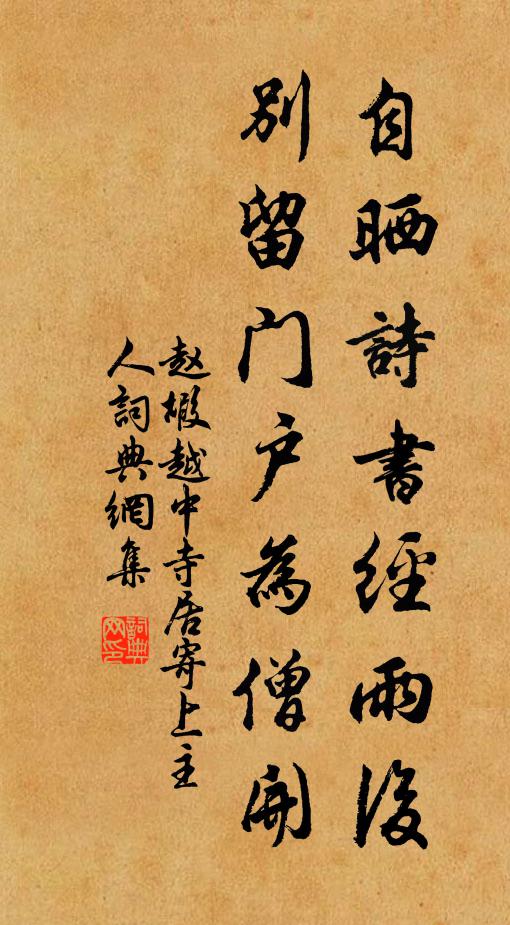 自晒詩書經雨後
别留門户為僧開
赵橃越中寺居寄上主
人詞典網集
詞典網印